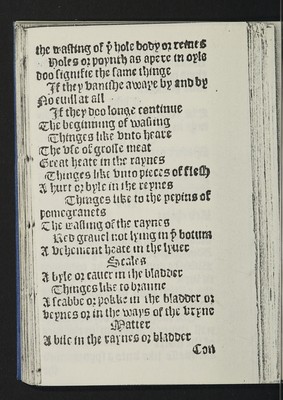 the wasting of yͤ hole body or reines
Holes or poynth as apere in oyle
doo signifie the same thinge
If they vanishe awaye by and by
No euill at all
If they doo longe continue
The beginning of wasting
Thinges like vnto heare
The vse of grosse meat
Great heate in the raynes
Thinges like vnto pieces of flesh
A hurt or byle in the reynes
Thinges like to the pepins of
pomegranets
The wasting of the raynes
Red grauel not lying in yͤ botum
A vehement heate in the lyuer
Scales
A byle or cauer in the bladder
Thinges like to branne
A scabbe or pokke in the bladder or
veynes or in the ways of the vryne
Matter
A bile in the raynes or bladder
Con